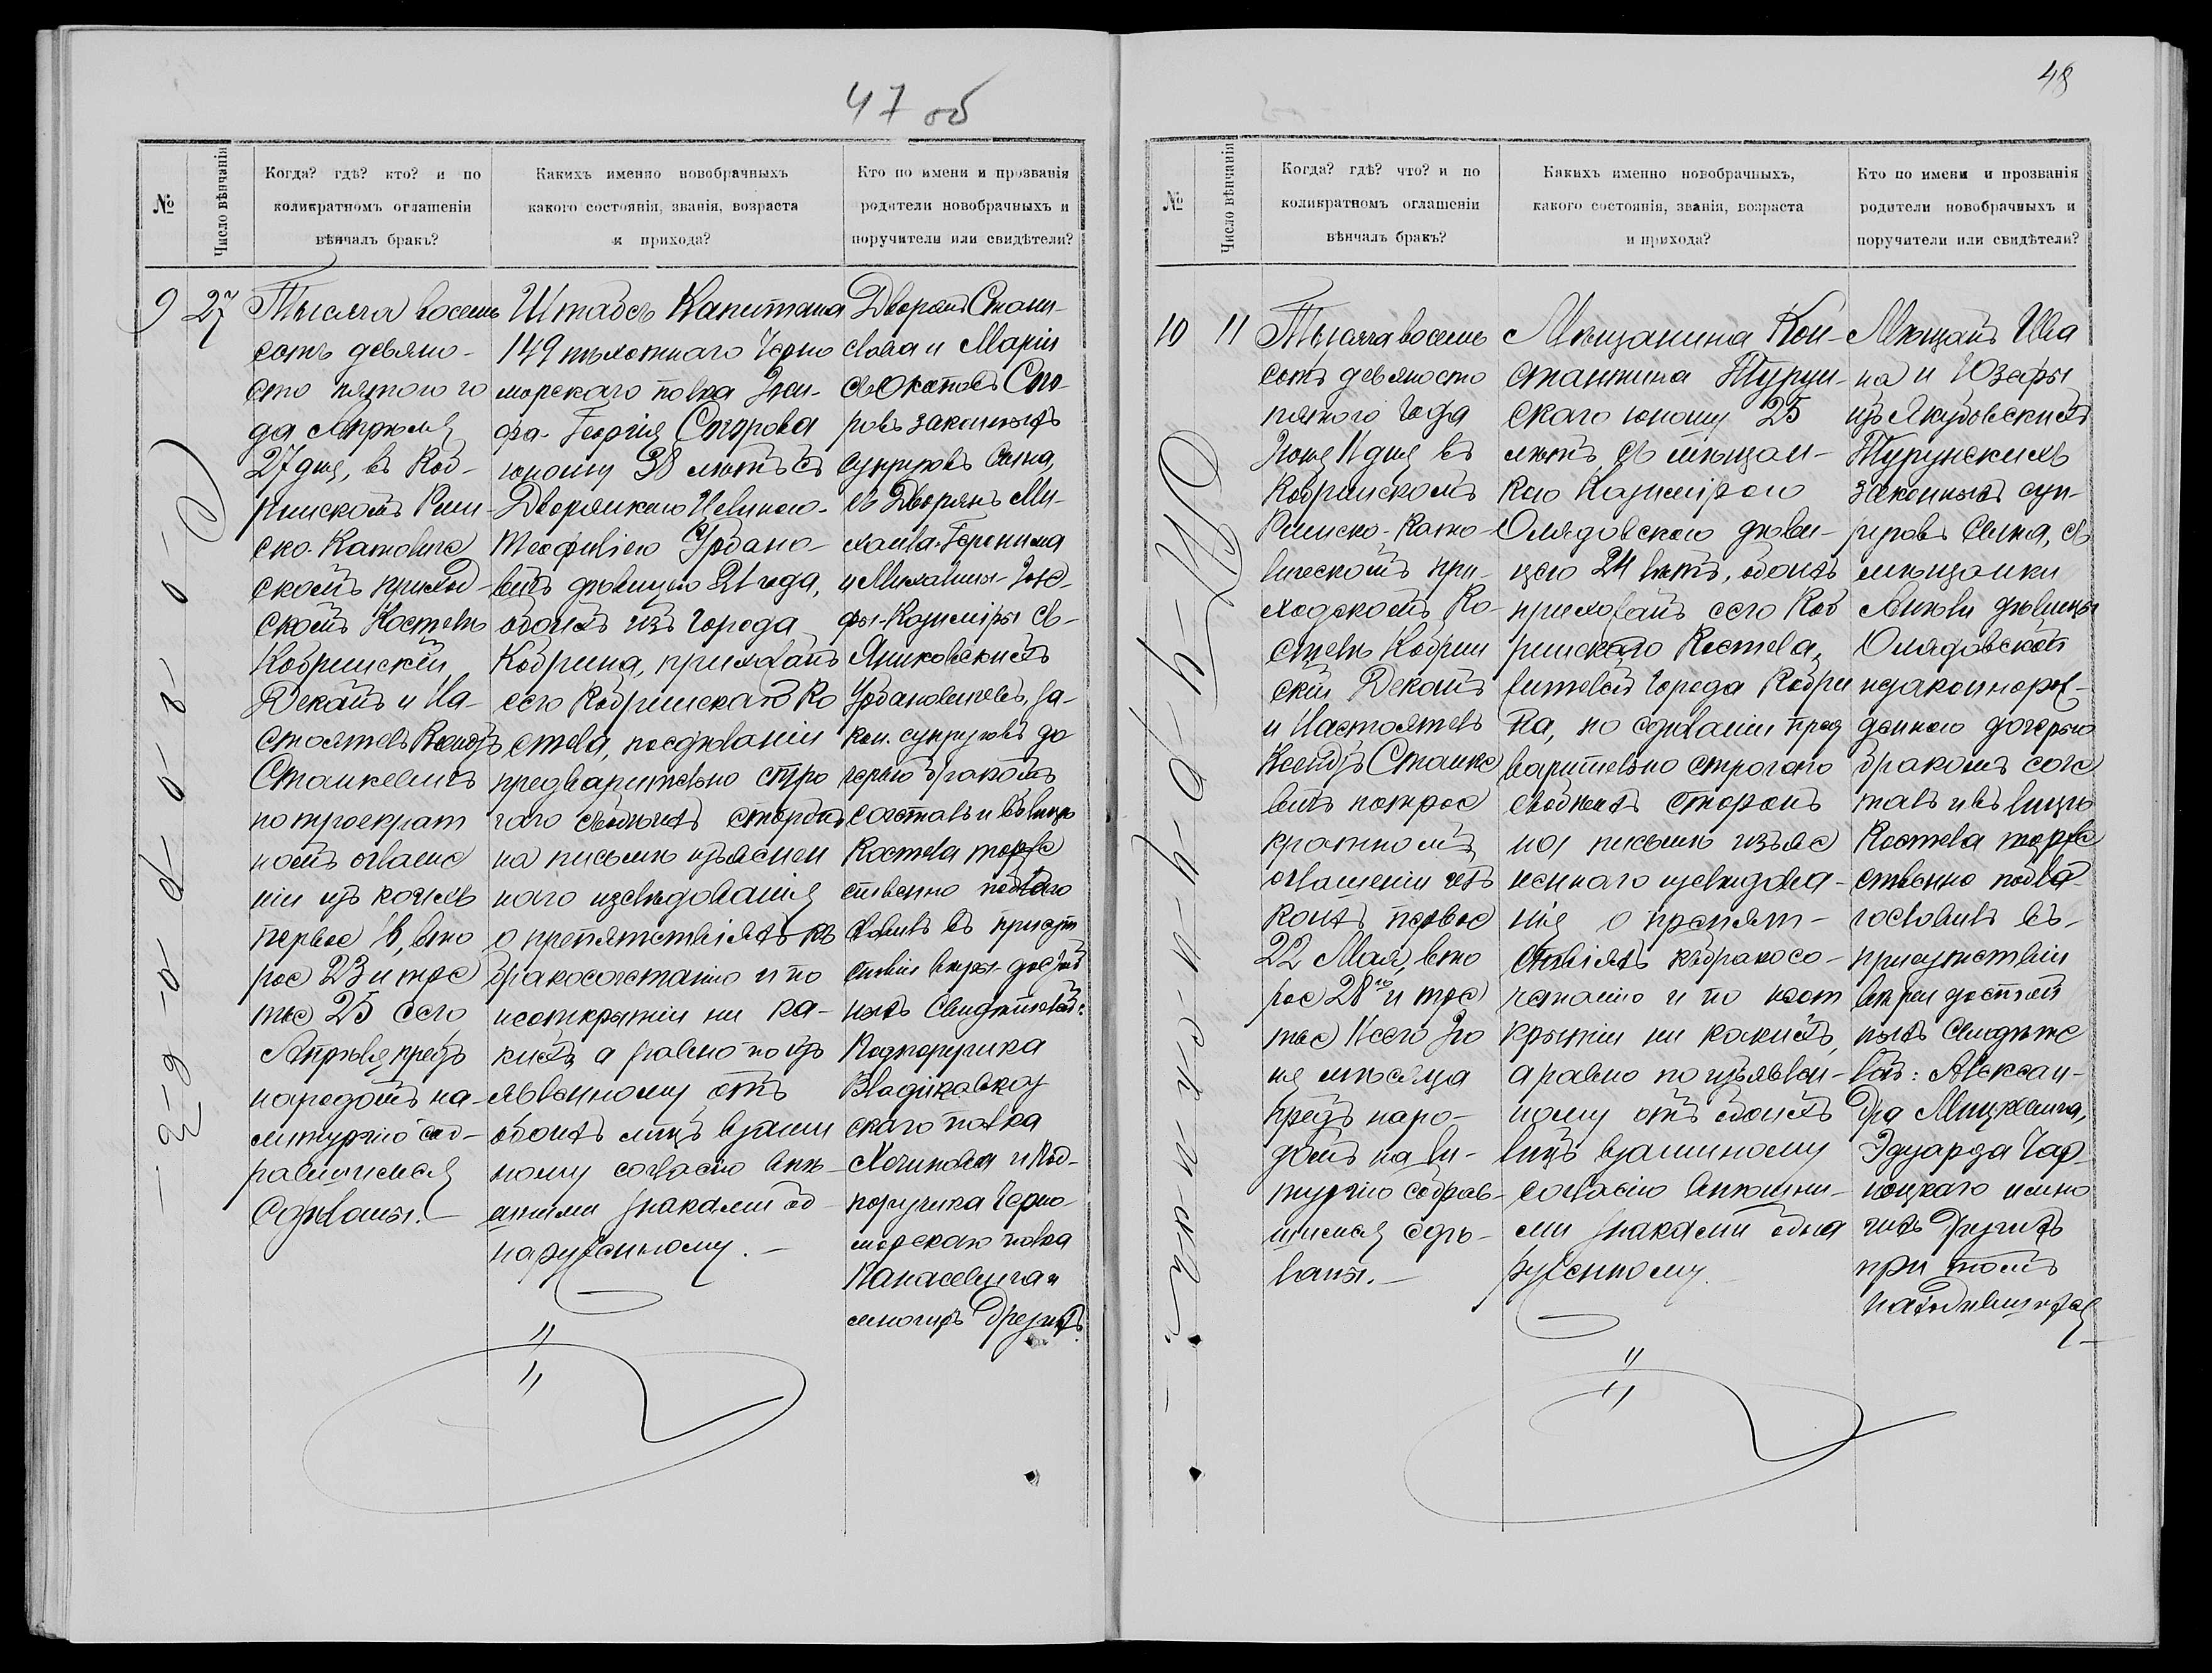 47 об
№
Число вѣнчанія
Когда? гдѣ? кто? и по
коликратномъ оглашеніи
вѣнчалъ бракъ?
Какихъ именно новобрачныхъ
какого состоянія, званія, возраста
и прихода?
Кто по имени и прозванія
родители новобрачныхъ и
поручители или свидѣтели?
9
27
Тысяча восемь
сотъ девяно-
сто пятого го
да Апрѣля
27 дня, въ Коб-
ринскомъ Рим-
ско-Католиче
скомъ приход-
скомъ Костелѣ
Кобринскій
Деканъ и На-
стоятель Ксендзъ
Станкевичъ
по троекрат
номъ оглаше
ніи изъ коихъ
первое
рое 23 и тре
тье 25 сего
Апрѣля предъ
народомъ на
литургію соб-
равшимися
Сдѣланы.-
Штабсъ Капитана
149 пѣхотнаго Черно
морскаго полка
Георгія
юношу 38 лѣтъ съ
Дворянкою
Теофилію Урбано-
вичъ дѣвицею 21 года,
обоихъ изъ города
Кобрина, прихожанъ
сего Кобринскаго Ко
стела, по сдѣланіи
предварительно стро
гаго обоюднихъ сторонъ
на письмѣ изъяснен
наго изслѣдованія
о препятствіяхъ къ
бракосочетанію и по
неоткрытіи ни ка-
кихъ а равно по изъ
явленному отъ
обоихъ лицъ взаим
ному согласію внѣ-
шними знаками об
наруженному.-
Дворянъ Стани-
слава и Маріи
законныхъ
супруговъ сына,
съ Дворянъ Ми-
хаила-Геронима
и Михалины-Юзе-
фы-Казиміры съ-
Янковскихъ
Урбановичевъ, за-
кон. супруговъ до
черью бракомъ
сочеталъ и въ лицѣ
Костела торже
ственно поблаго
словилъ въ присут
ствіи вѣры достой
ныхъ Свидѣтелей:
Подпоручика
Владикавказ
скаго полка
и Под-
поручика Черно-
морскаго полка
Панасевича и
многихъ другихъ.
48
№
Число вѣнчанія
Когда? гдѣ? что? и по
коликратномъ оглашеніи
вѣнчалъ бракъ?
Какихъ именно новобрачныхъ,
какого состоянія, званія, возраста
и прихода?
Кто по имени и прозванія
родители новобрачныхъ и
поручители или свидѣтели?
10
11
Тысяча восемь
сотъ девяносто
пятого года
Іюня 11 дня въ
Кобринскомъ
Римско-Като-
лическомъ при-
ходскомъ Ко-
стелѣ Кобрин
скій Деканъ
и Настоятель
Ксендзъ Станке
вичъ по трое
кратномъ
оглашеніи изъ
коихъ первое
22 Мая, вто
рое 28го и тре
тье 11 сего Iю
ня мѣсяца
предъ наро-
домъ на ли-
тургію собрав-
шимися сдѣ-
ланы.-
Мѣщанина Кон-
стантина Турун-
скаго юношу 25
лѣтъ съ мѣщан-
кою Казимірою
Олядовскою дѣви-
цею 24 лѣтъ, обоихъ
прихожанъ сего Коб
ринскаго Костела,
жителей города Кобри
на, по сдѣланіи пред
варительно строгаго
обоюднихъ сторонъ
на письмѣ изъяс
неннаго изслѣдова-
нія о препят-
ствіяхъ къ бракосо-
четанію и по неот
крытіи ни какихъ,
а равно по изъявлен-
ному отъ обоихъ
лицъ взаимному
согласію внѣшни-
ми знаками обна
руженному.
Мѣщанъ Ива
на и Юзефы
изъ Якубовскихъ
Турунскихъ
законныхъ суп-
руговъ сына, съ
мѣщанки
дѣвицы
Олядовской
незаконнорож-
денною дочерью
бракомъ соче
талъ и въ лицѣ
Костела торже
ственно побла-
гословилъ въ-
присутствіи
вѣры достой
ныхъ Свидѣте
лей: Алексан-
дра Мицкевича,
Эдуарда Чар-
ноцкаго и мно
гихъ другихъ
при томъ
находившихся